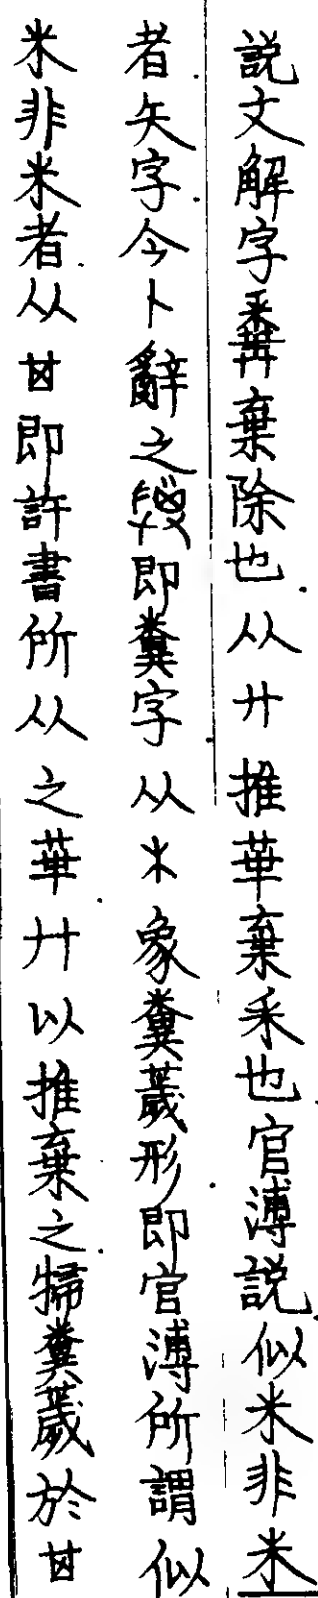 説文解字糞棄除也从廾推華棄釆也官溥説似米非米
者矢字今卜辭之即糞字从米象糞薉形即官溥所謂似
米非米者从即許書所从之華廾以推棄之掃糞薉於